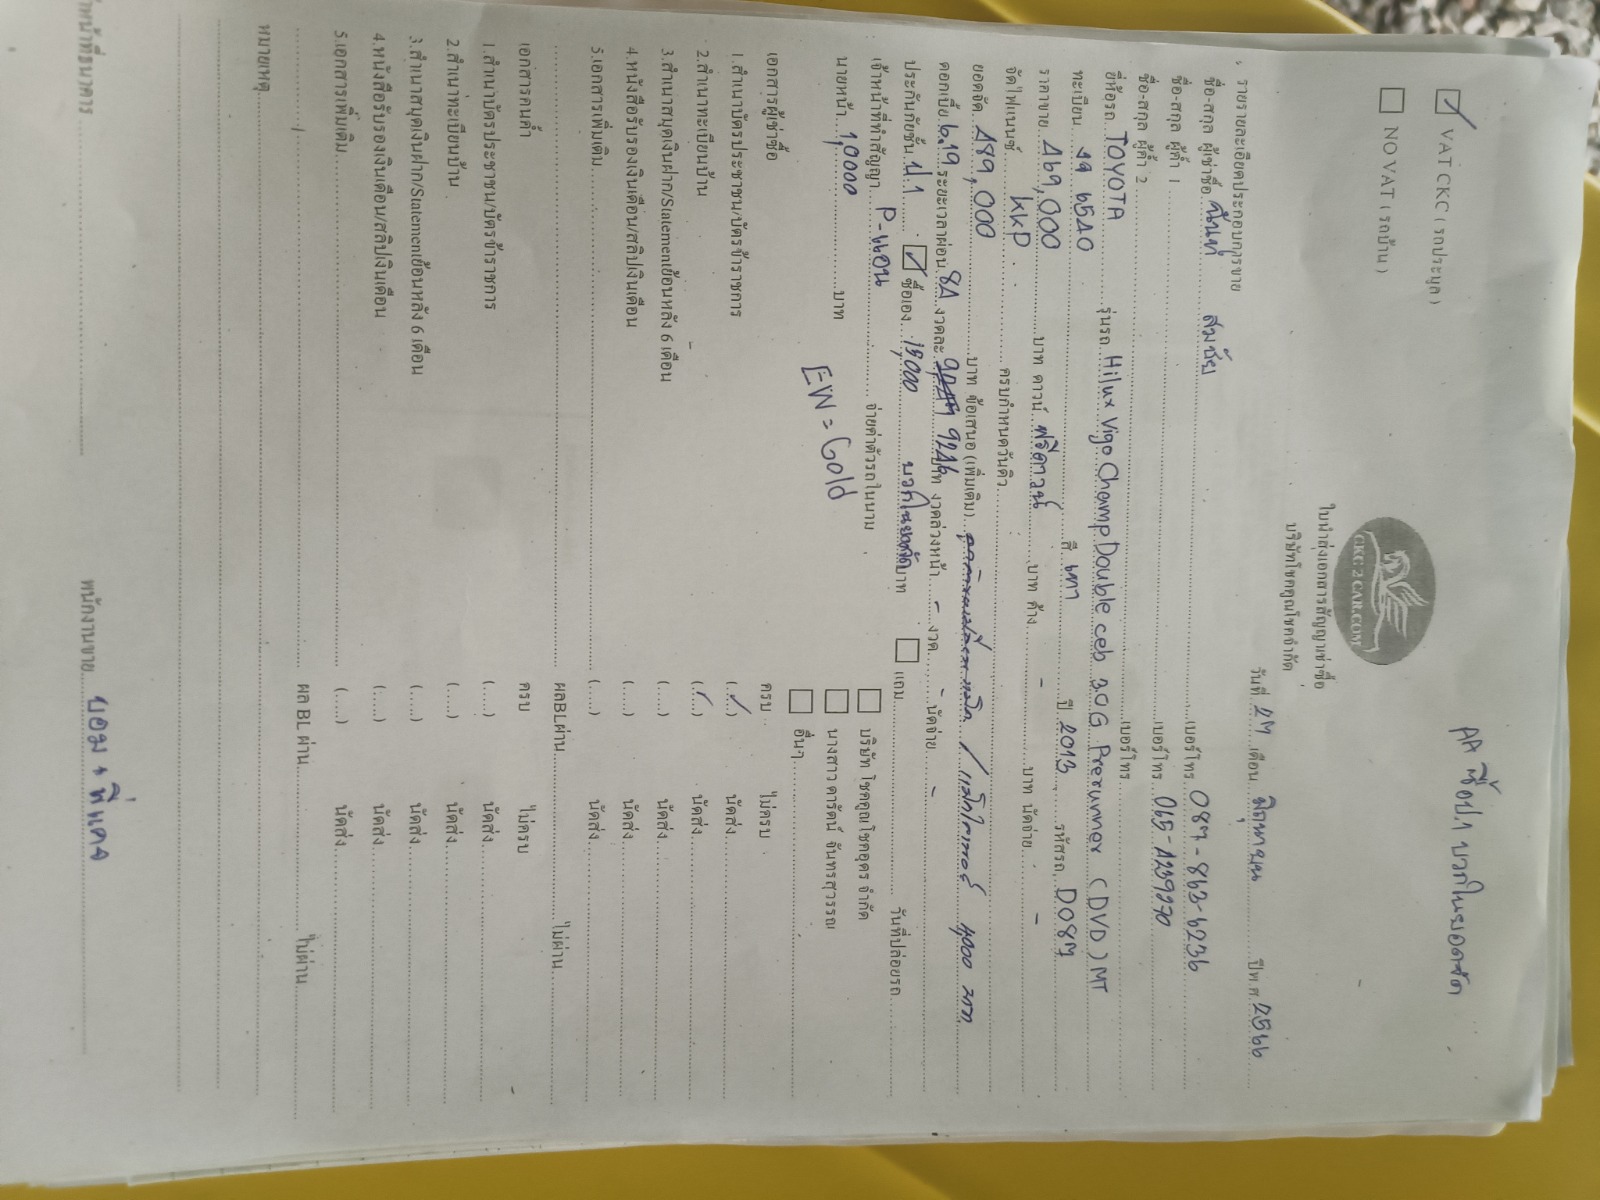 AA ซื้อป.1 บวกในยอดจัด
☑ VAT CKC ( รถประมูล )
☐ NO VAT ( รถบ้าน )
CKC 2 CAR.COM
ใบนำส่งเอกสารสัญญาเช่าซื้อ
บริษัทโชคคูณโชคจำกัด
วันที่ 27 เดือน มิถุนายน ปี พ.ศ. 2566
รายรายละเอียดประกอบการขาย
ชื่อ-สกุล ผู้เช่าซื้อ สมชัย เบอร์โทร 087-863-6236
ชื่อ-สกุล ผู้ค้ำ 1 เบอร์โทร 065-4239270
ชื่อ-สกุล ผู้ค้ำ 2 เบอร์โทร
ยี่ห้อรถ TOYOTA รุ่นรถ Hilux Vigo Champ Double ceb 3.0G Prerunner (DVD) MT
ทะเบียน 6540 สี เทา ปี 2013 รหัสรถ D087
ราคาขาย 469,000 บาท ดาวน์ ฟรีดาวน์ บาท ค้าง - บาท นัดจ่าย -
จัดไฟแนนซ์ KKP ครบกำหนดวันดิว
ยอดจัด 489,000 บาท ข้อเสนอ (เพิ่มเติม) / 4,000 บาท
ดอกเบี้ย 6.19 ระยะเวลาผ่อน 84 งวดละ 9246 บาท งวดล่วงหน้า - งวด - นัดจ่าย -
ประกันภัยชั้น ป.1 ☑ ซื้อเอง 19,000 บวกในยอดจัด บาท ☐ แถม วันที่ปล่อยรถ
เจ้าหน้าที่ทำสัญญา P-แอน จ่ายค่าตัวรถในนาม ☐ บริษัท โชคคูณโชคอุดร จำกัด
นายหน้า 10,000 บาท ☐ นางสาว ดารัตน์ จันทรสุวรรณ
EW = Gold ☐ อื่นๆ
เอกสารผู้เช่าซื้อ ครบ ไม่ครบ
1.สำเนาบัตรประชาชน/บัตรข้าราชการ (✓) นัดส่ง
2.สำเนาทะเบียนบ้าน (✓) นัดส่ง
3.สำเนาสมุดเงินฝาก/Statementย้อนหลัง 6 เดือน (....) นัดส่ง
4.หนังสือรับรองเงินเดือน/สลิปเงินเดือน (....) นัดส่ง
5.เอกสารเพิ่มเติม (....) นัดส่ง
ผลBLผ่าน ไม่ผ่าน
เอกสารคนค้ำ ครบ ไม่ครบ
1.สำเนาบัตรประชาชน/บัตรข้าราชการ (....) นัดส่ง
2.สำเนาทะเบียนบ้าน (....) นัดส่ง
3.สำเนาสมุดเงินฝาก/Statementย้อนหลัง 6 เดือน (....) นัดส่ง
4.หนังสือรับรองเงินเดือน/สลิปเงินเดือน (....) นัดส่ง
5.เอกสารเพิ่มเติม (....) นัดส่ง
ผล BL ผ่าน ไม่ผ่าน
หมายเหตุ
หน้าที่ธนาคาร พนักงานขาย